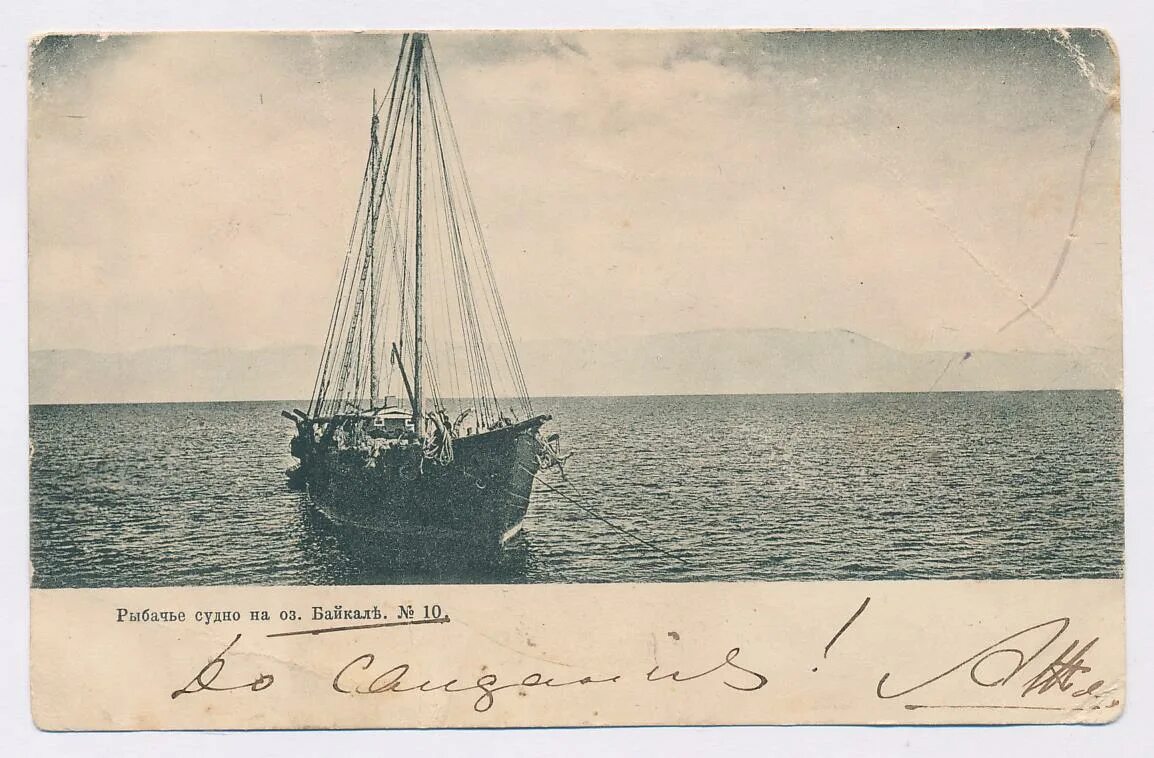 Рыбачье судно на оз. Байкалѣ. № 10.
До свиданія!